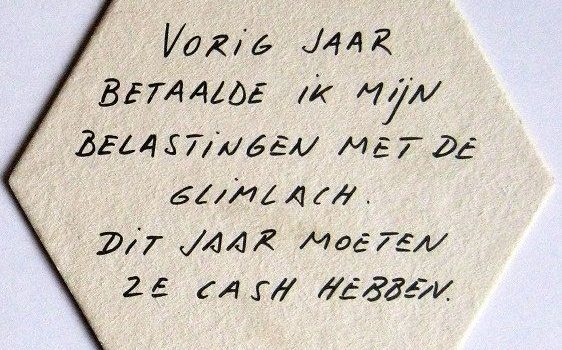 VORIG JAAR
BETAALDE IK MIJN
BELASTINGEN MET DE
GLIMLACH.
DIT JAAR MOETEN
ZE CASH HEBBEN.